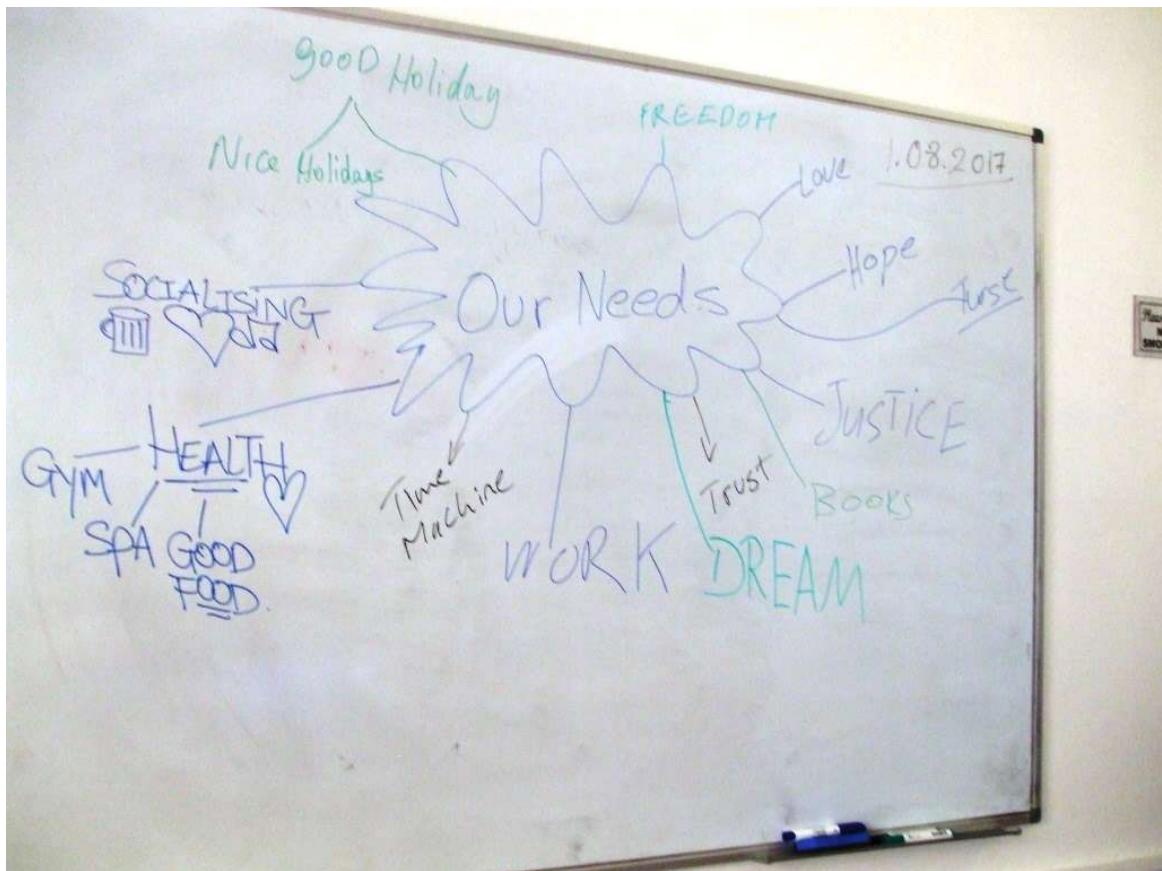 gooD Holiday
Nice Holidays
FREEDOM
Love
1.08.2017
Hope
Turst
Our Needs
SOCIALISING
JUSTICE
HEALTH
GYM
SPA
GOOD
FOOD.
Time
Machine
WORK
Trust
DREAM
BOOKS